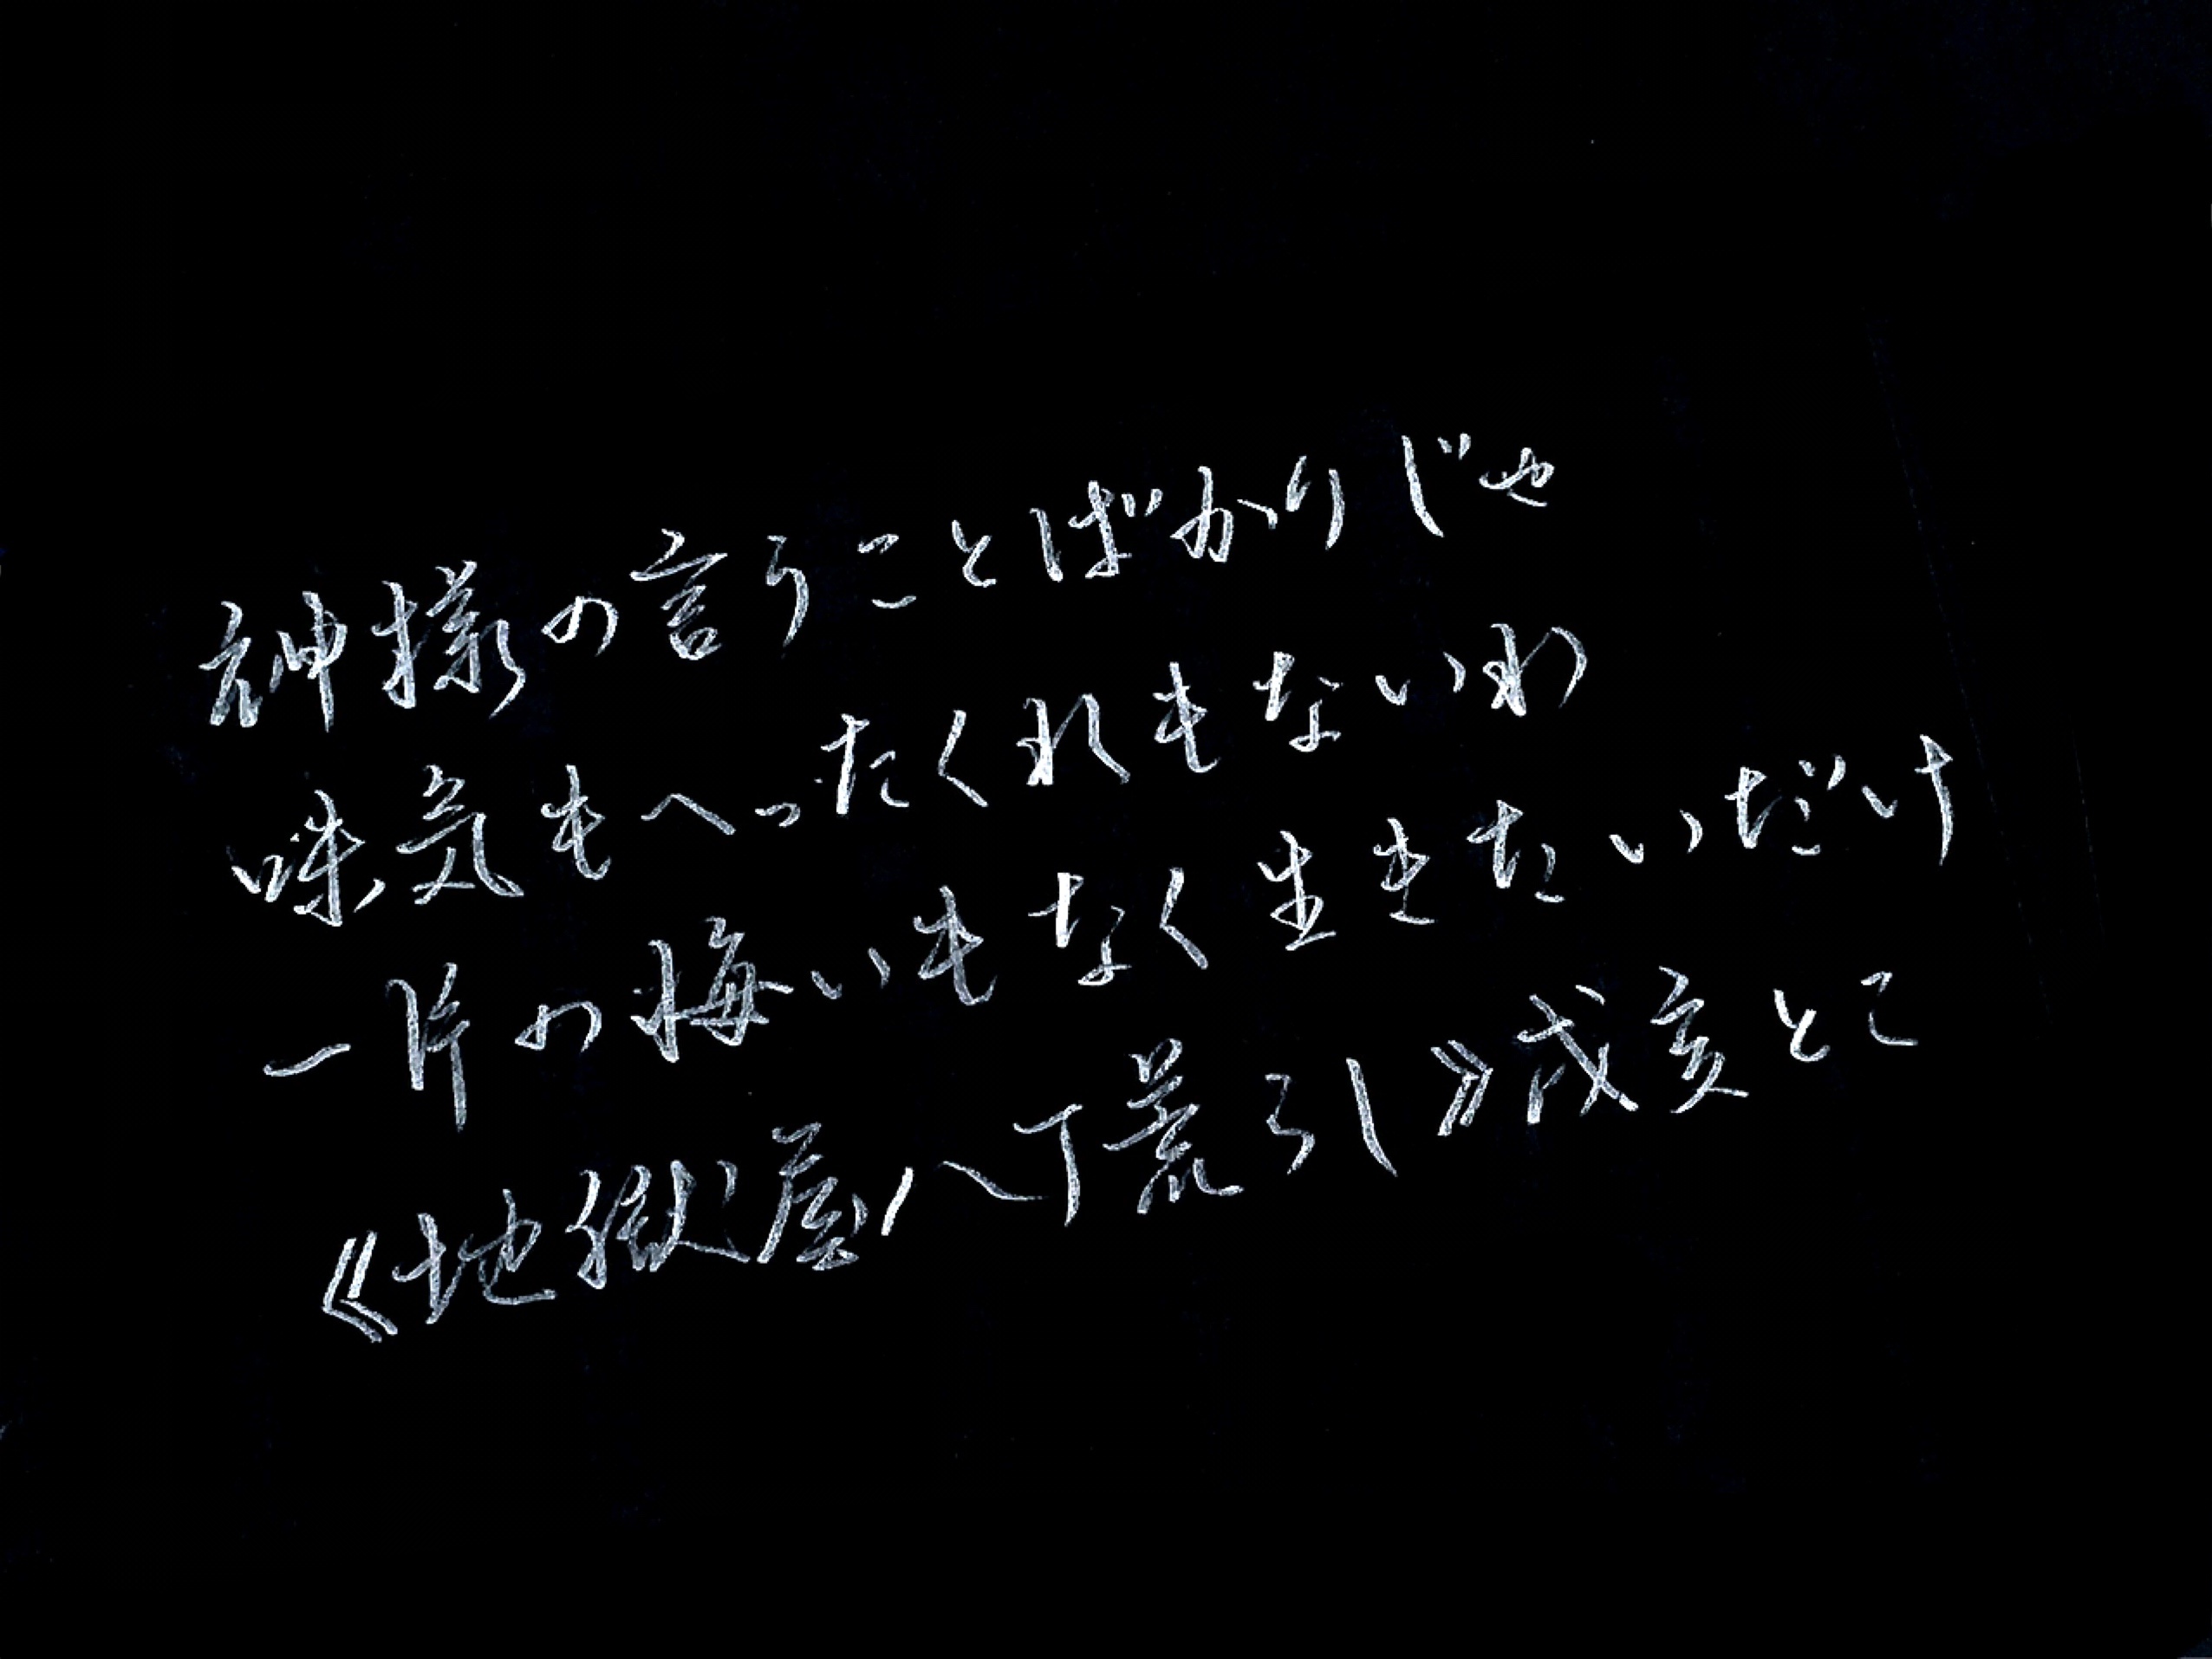 神様の言うことばかりじゃ
味気もへったくれもないわ
一片の悔いもなく生きたいだけ
《地獄屋八丁荒らし》戌亥とこ